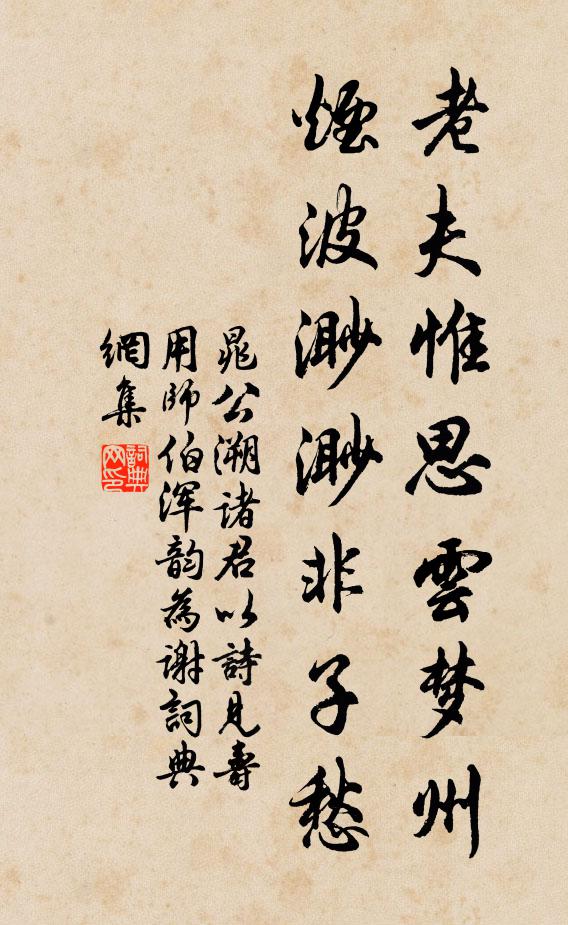 老夫惟思雲梦州
煙波渺渺非子愁
晁公溯諸君以詩見壽
用師伯浑韵為谢詞典
網集
詞典
网印